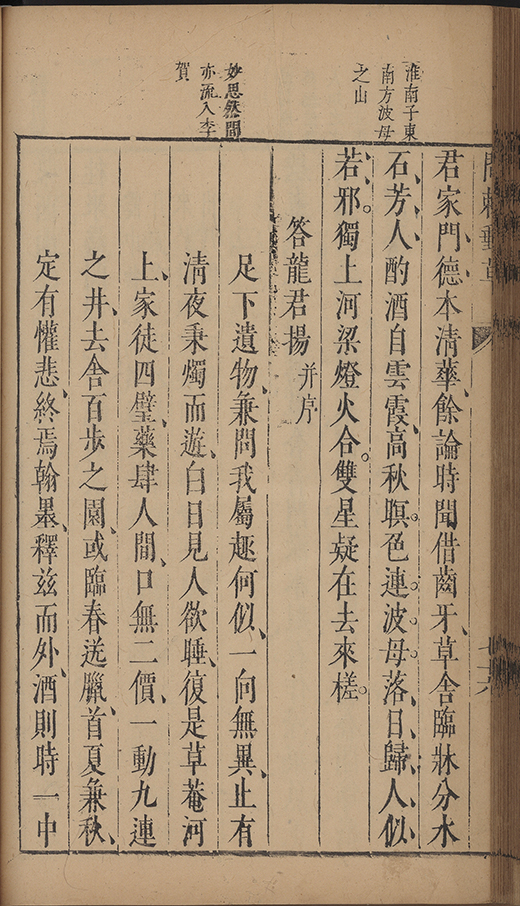 淮南子東
南方波母
之山
妙思然間
亦流入李
賀
問棘郵草
君家門德本清華餘論時聞借齒牙草舍臨牀分水
石芳人酌酒自雲霞高秋暝色連波母落日歸人似
若邪獨上河梁燈火合雙星疑在去來槎
答龍君揚并序
足下遺物兼問我屬趣何似一向無異止有
清夜秉燭而遊白日見人欲睡復是草菴河
上家徒四璧藥肆人間口無二價一動九連
之井去舍百步之園或臨春送臘首夏兼秋
定有懽悲終焉翰墨釋茲而外酒則時一中